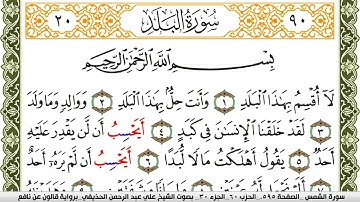 ٩٠ سُورَةُ البَلَدِ ٢٠
بِسْمِ اللَّهِ الرَّحْمَٰنِ الرَّحِيمِ
لَا أُقْسِمُ بِهَٰذَا الْبَلَدِ ١ وَأَنتَ حِلٌّ بِهَٰذَا الْبَلَدِ ٢ وَوَالِدٍ وَمَا وَلَدَ
٣ لَقَدْ خَلَقْنَا الْإِنسَٰنَ فِي كَبَدٍ ٤ أَيَحْسِبُ أَن لَّن يَقْدِرَ عَلَيْهِ
أَحَدٌ ٥ يَقُولُ أَهْلَكْتُ مَالًا لُّبَدًا ٦ أَيَحْسِبُ أَن لَّمْ يَرَهُ أَحَدٌ
سورة الشمس . الصفحة ٥٩٥. الحزب ٦٠ الجزء ٣٠. بصوت الشيخ علي عبد الرحمن الحذيفي . برواية قالون عن نافع